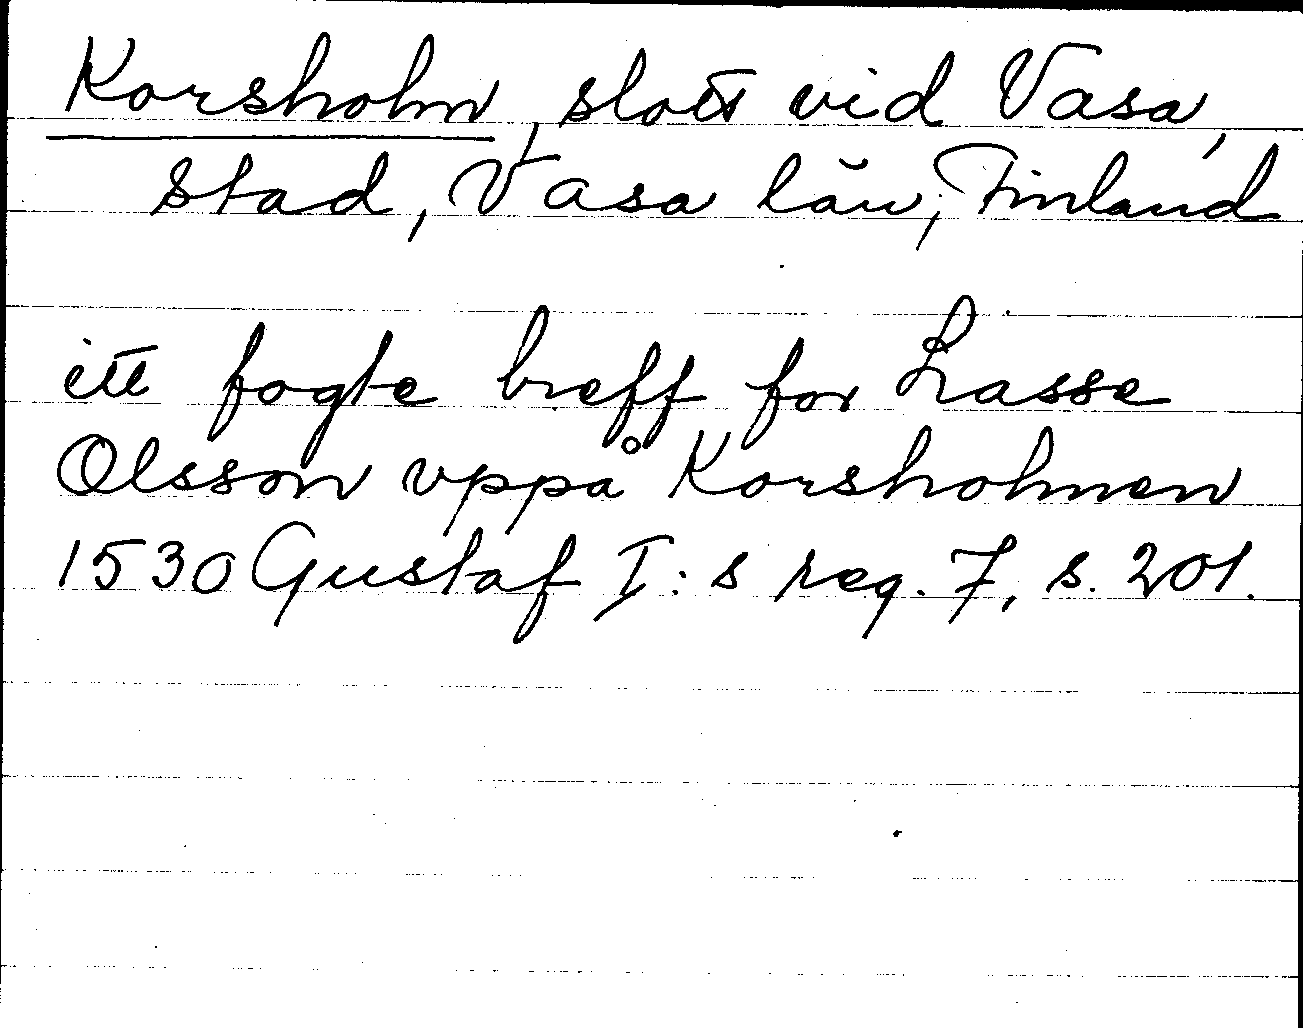 Korsholm, slott vid Vasa,
stad, Vasa län, Finland
itt fogte breff for Lasse
Olsson vppå Korsholmen
1530 Gustaf I:s reg. 7, s. 201.